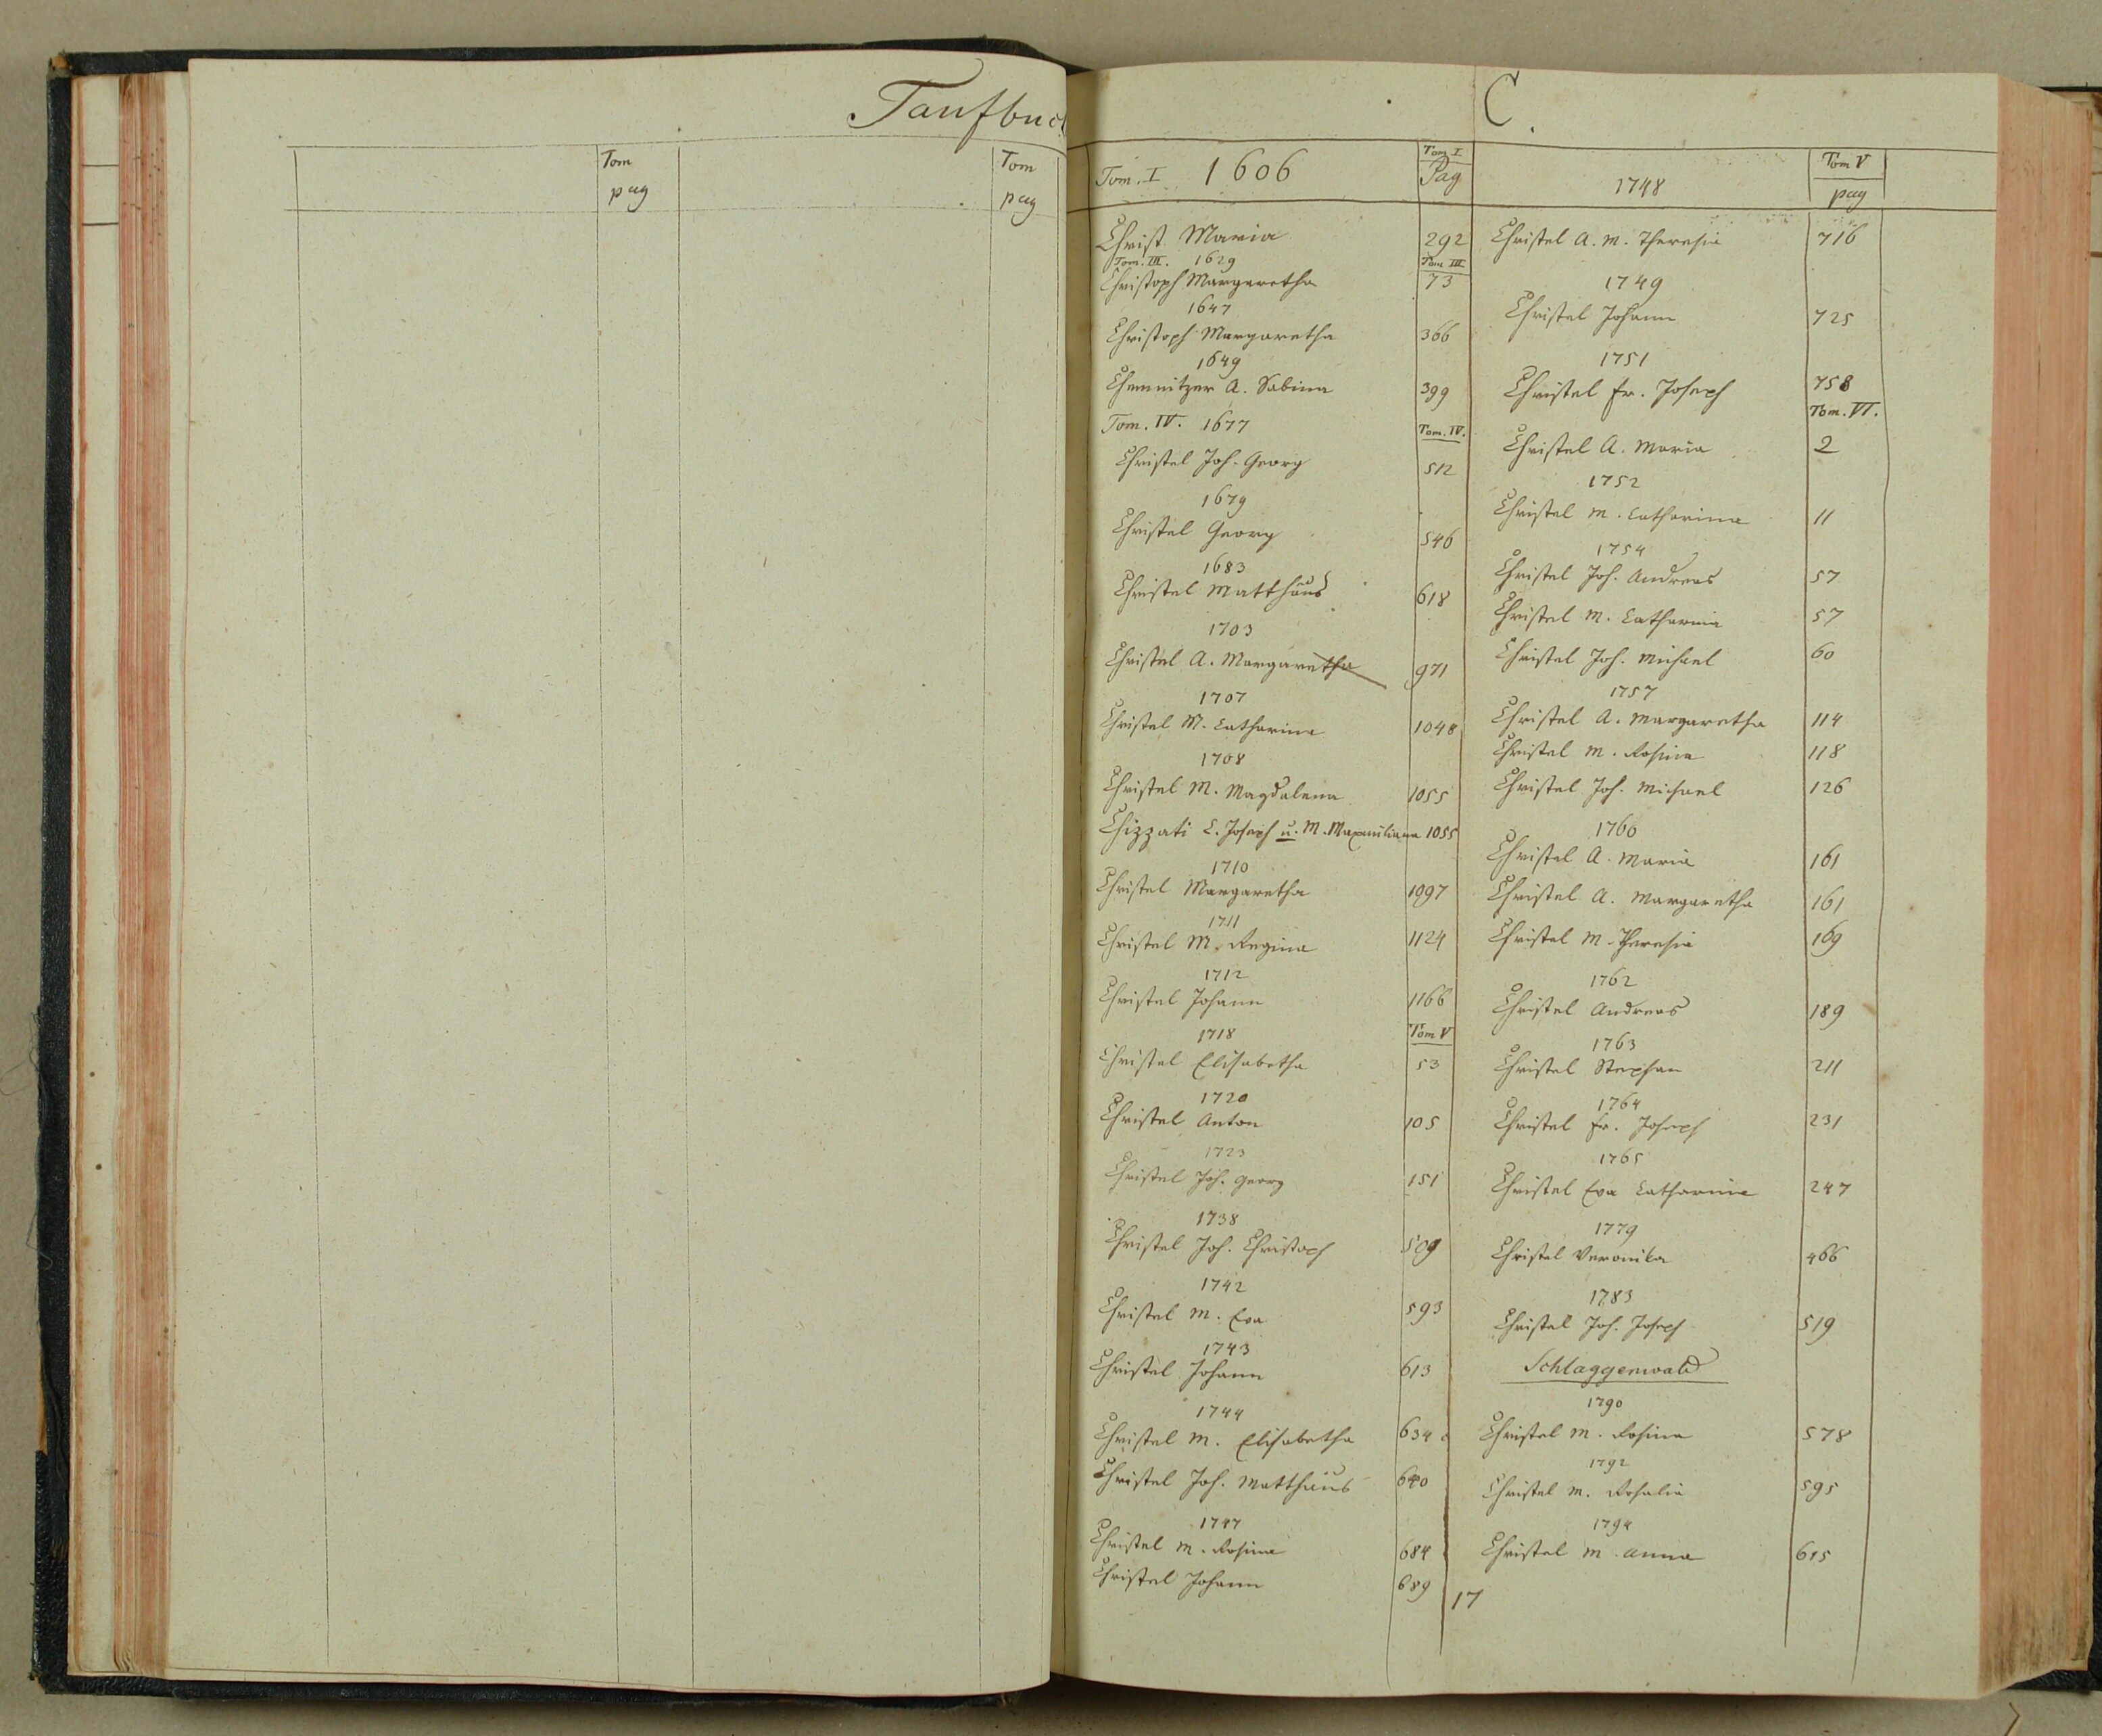 Taufbuch
Tom
pag
Tom
pag
C.
Tom. I 1606
Tom I
Pag
Christ Maria 292
Tom. III. 1629 Tom III
Christoph Margaretha 73
1647
Christoph Margaretha 366
1649
Chemnitzer A. Sabina 399
Tom. IV. 1677 Tom. IV.
Christel Joh. Georg 512
1679
Christel Georg 546
1683
Christel Matthäus 618
1703
Christel A. Margaretha 971
1707
Christel M. Catharina 1048
1708
Christel M. Magdalena 1055
Chizzati C. Joseph u. M. Maxmiliana 1055
1710
Christel Margaretha 1097
1711
Christel M. Regina 1124
1712
Christel Johann 1166
1718 Tom V
Christel Elisabetha 53
1720
Christel Anton 105
1723
Christel Joh. Georg 151
1738
Christel Joh. Christoph 509
1742
Christel M. Eva 593
1743
Christel Johann 613
1744
Christel M. Elisabetha 634
Christel Joh. Matthäus 640
1747
Christel M. Rosina 684
Christel Johann 689
1748
Tom V
pag
Christel A. M. Theresia 716
1749
Christel Johann 725
1751
Christel Fr. Joseph 758
Tom. VI.
Christel A. Maria 2
1752
Christel M. Catharina 11
1754
Christel Joh. Andreas 57
Christel M. Catharina 57
Christel Joh. Michael 60
1757
Christel A. Margaretha 114
Christel M. Rosina 118
Christel Joh. Michael 126
1760
Christel A. Maria 161
Christel A. Margaretha 161
Christel M. Theresia 169
1762
Christel Andreas 189
1763
Christel Stephan 211
1764
Christel Fr. Joseph 231
1765
Christel Eva Catharina 247
1779
Christel Veronika 466
1783
Christel Joh. Joseph 519
Schlaggenwald
1790
Christel M. Rosina 578
1792
Christel M. Rosalia 595
1794
Christel M. Anna 615
17